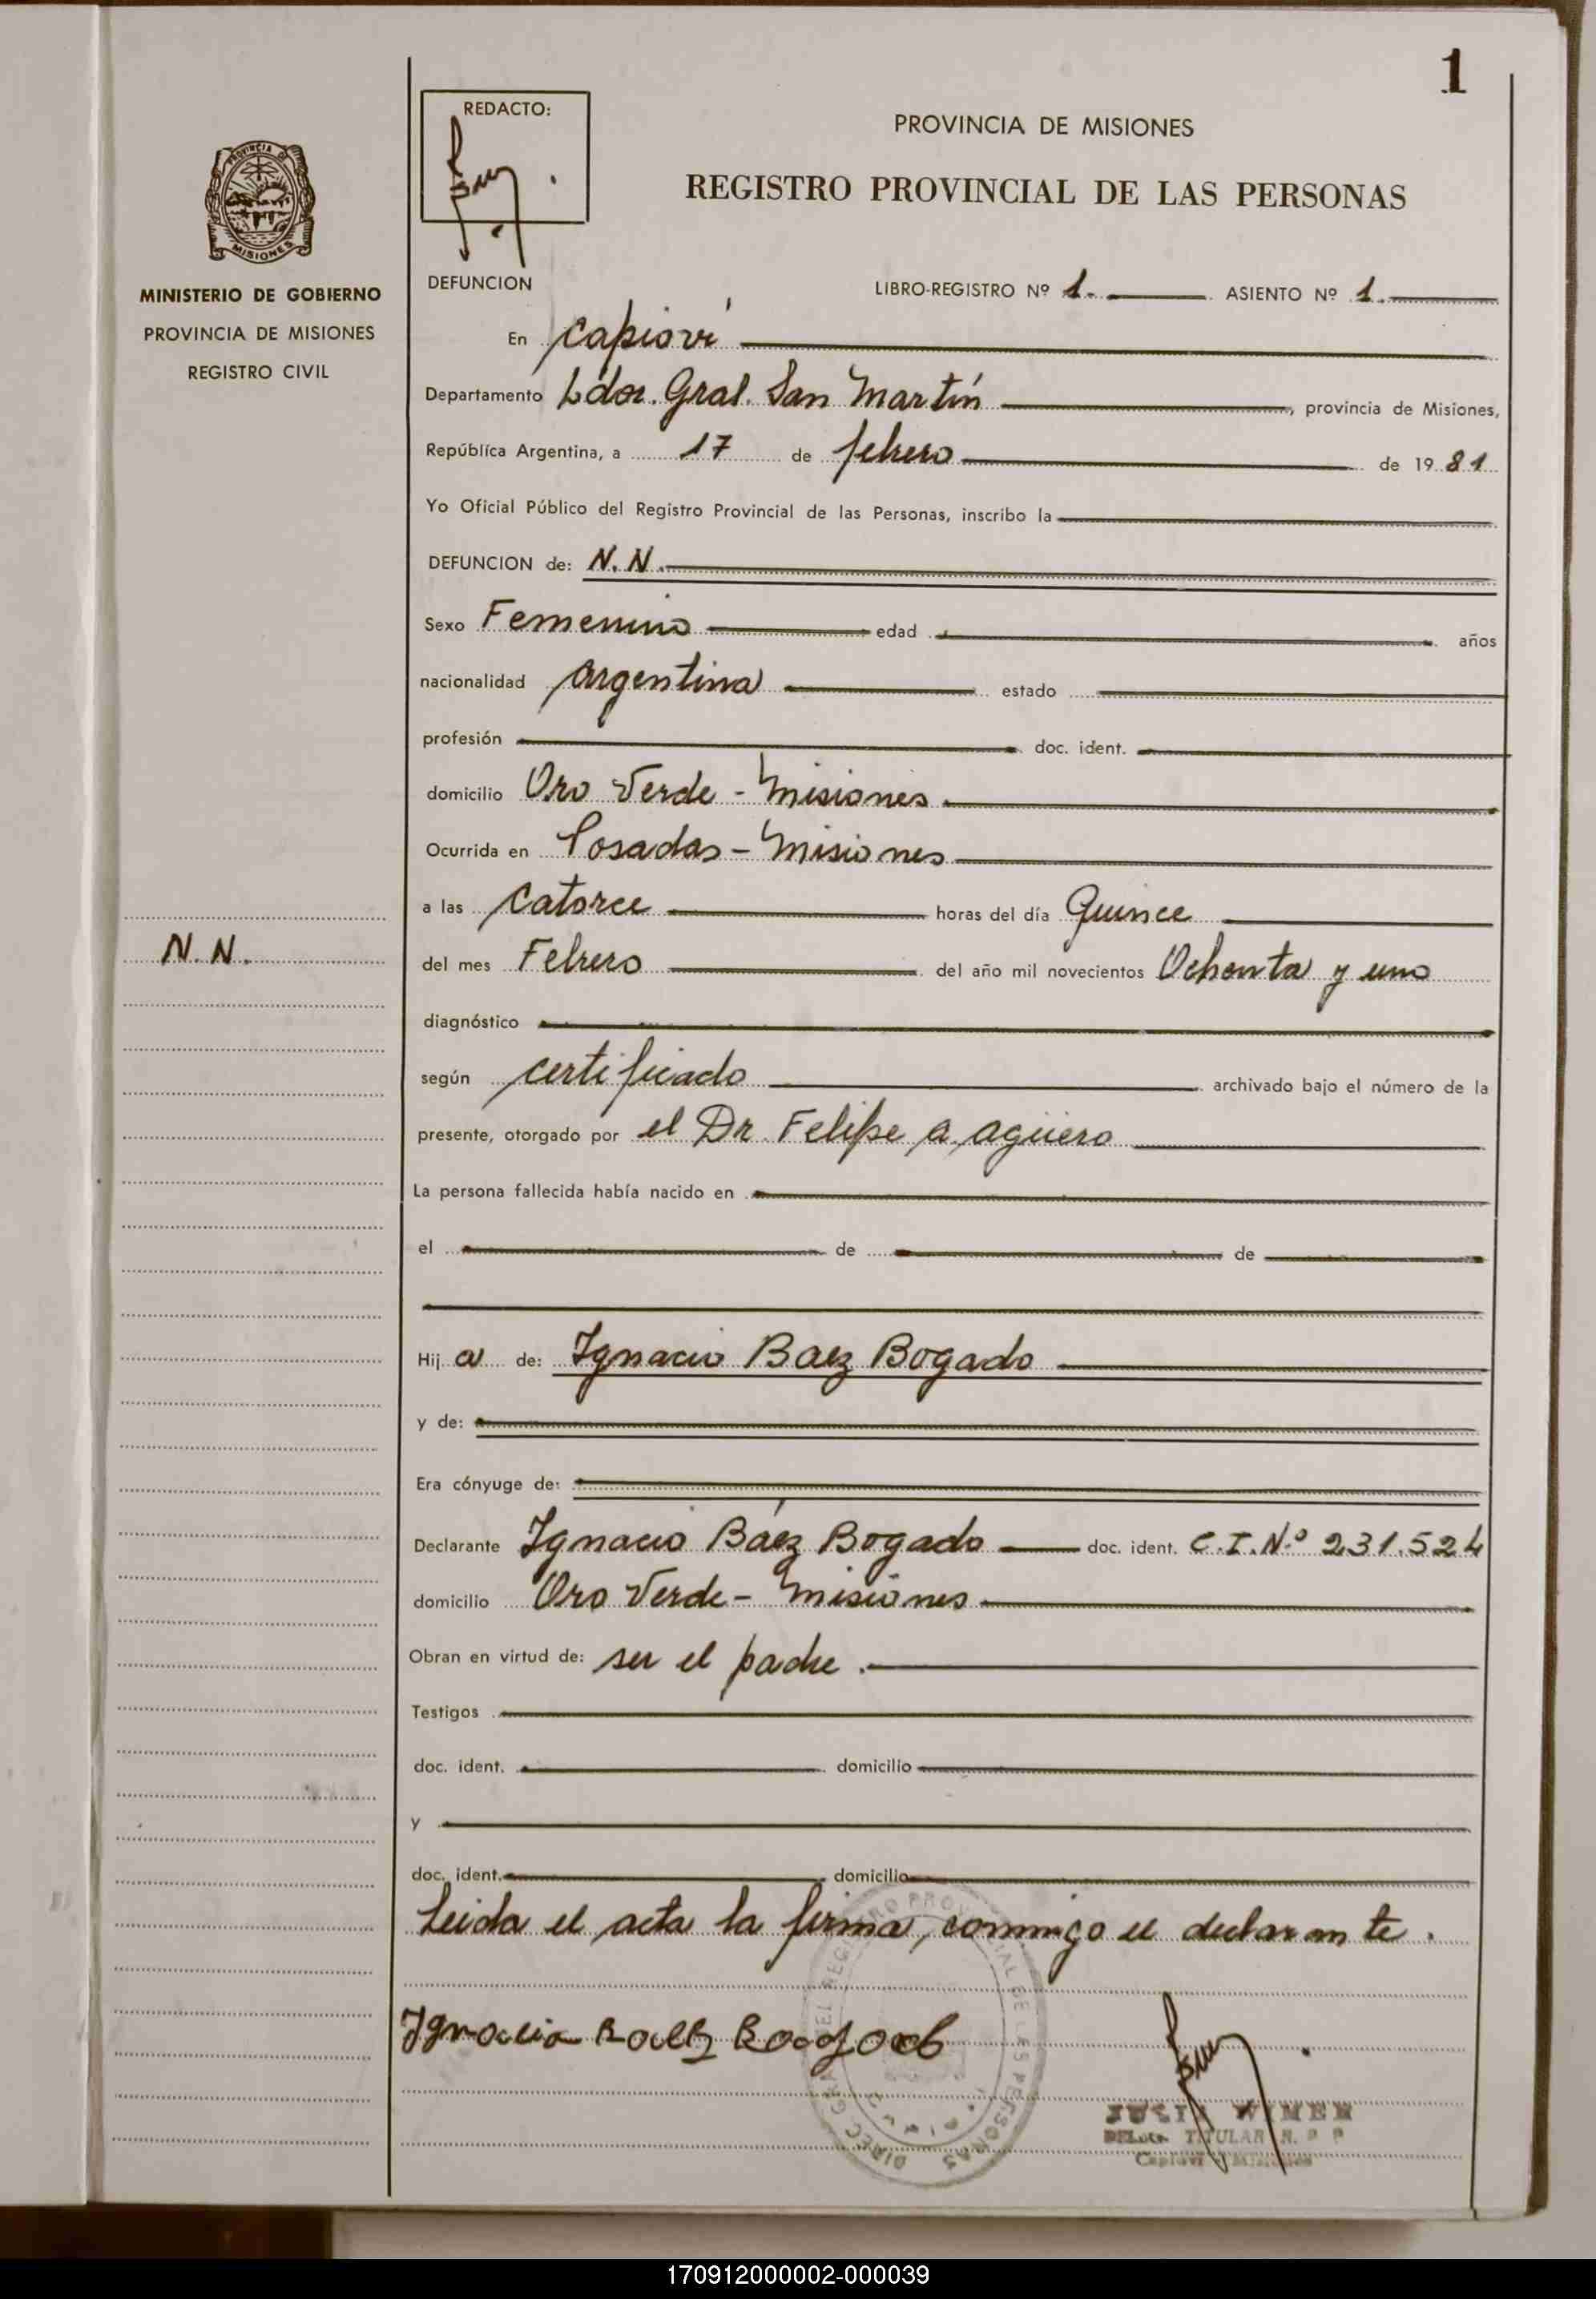 1
REDACTO:
PROVINCIA DE MISIONES
REGISTRO PROVINCIAL DE LAS PERSONAS
PROVINCIA DE
MISIONES
MINISTERIO DE GOBIERNO
PROVINCIA DE MISIONES
REGISTRO CIVIL
DEFUNCION
LIBRO-REGISTRO Nº 1. ASIENTO Nº 1.
En Capioví
Departamento Ldor. Gral. San Martín, provincia de Misiones,
República Argentina, a 17 de febrero de 1981
Yo Oficial Público del Registro Provincial de las Personas, inscribo la
DEFUNCION de: N. N.
Sexo Femenino edad años
nacionalidad Argentina estado
profesión doc. ident.
domicilio Oro Verde - Misiones
Ocurrida en Posadas - Misiones
a las Catorce horas del día Quince
N. N.
del mes Febrero del año mil novecientos Ochenta y uno
diagnóstico
según certificado archivado bajo el número de la
presente, otorgado por el Dr. Felipe A. Agüero
La persona fallecida había nacido en
el de de
Hij a de: Ignacio Baez Bogado
y de:
Era cónyuge de:
Declarante Ignacio Báez Bogado doc. ident. C.I.Nº 231.524
domicilio Oro Verde - Misiones
Obran en virtud de: ser el padre.
Testigos
doc. ident. domicilio
y
doc. ident. domicilio
Leida el acta la firma, conmigo el declarante.
TITULAR R. P. P.
170912000002-000039